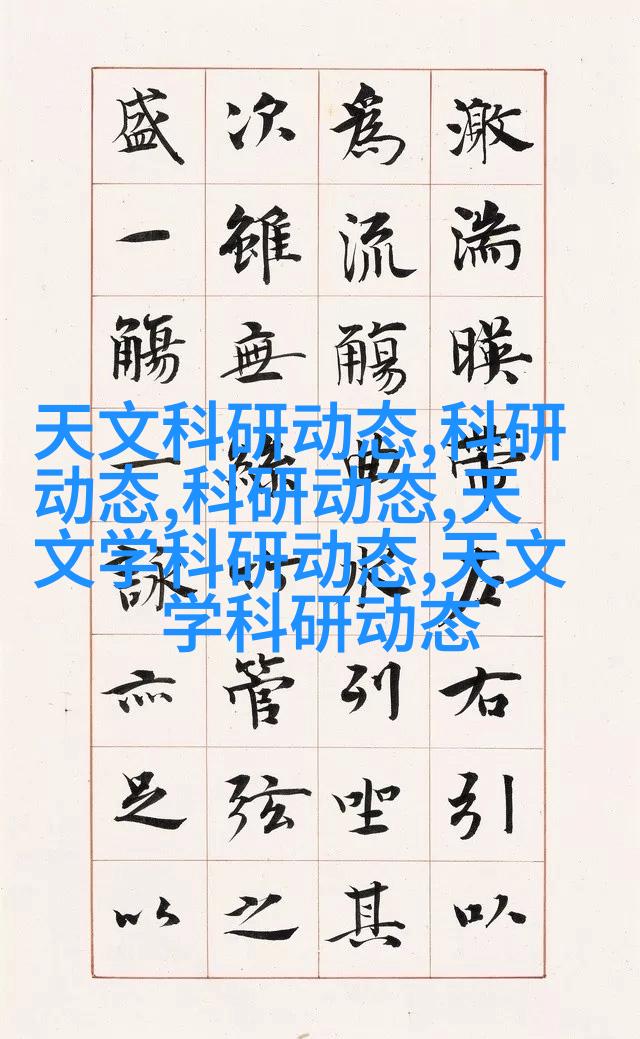 激湍暎帶左右引以
為流觴曲水列坐其
次雖無絲竹管弦之
盛一觴一詠亦足以
天文科研动态,科研
动态,科研动态,天
文学科研动态,天文
学科研动态